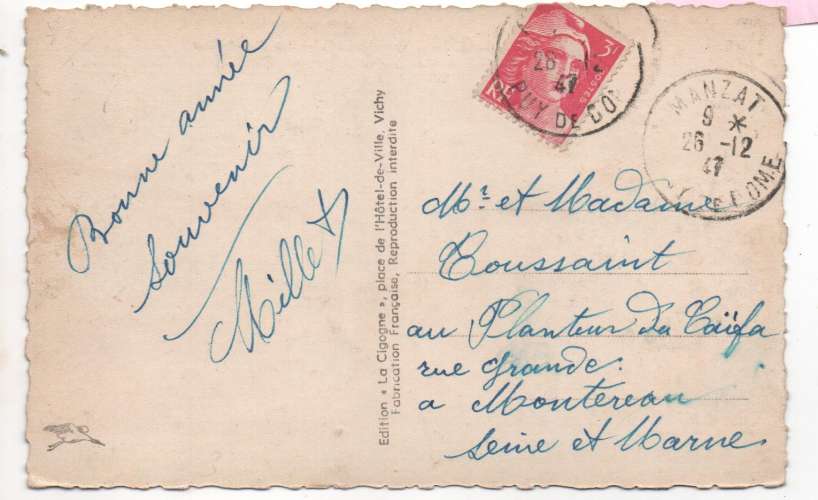 Bonne année
souvenir
Millet
Edition « La Cigogne », place de l'Hôtel-de-Ville, Vichy
Fabrication Française, Reproduction interdite
3F
POSTES
RF
26 -12
47
PUY DE DOME
MANZAT
9 *
26 -12
47
PUY DE DOME
Mr. et Madame
Toussaint
au Planteur du Caïffa
rue grande.
a Montereau
Seine et Marne